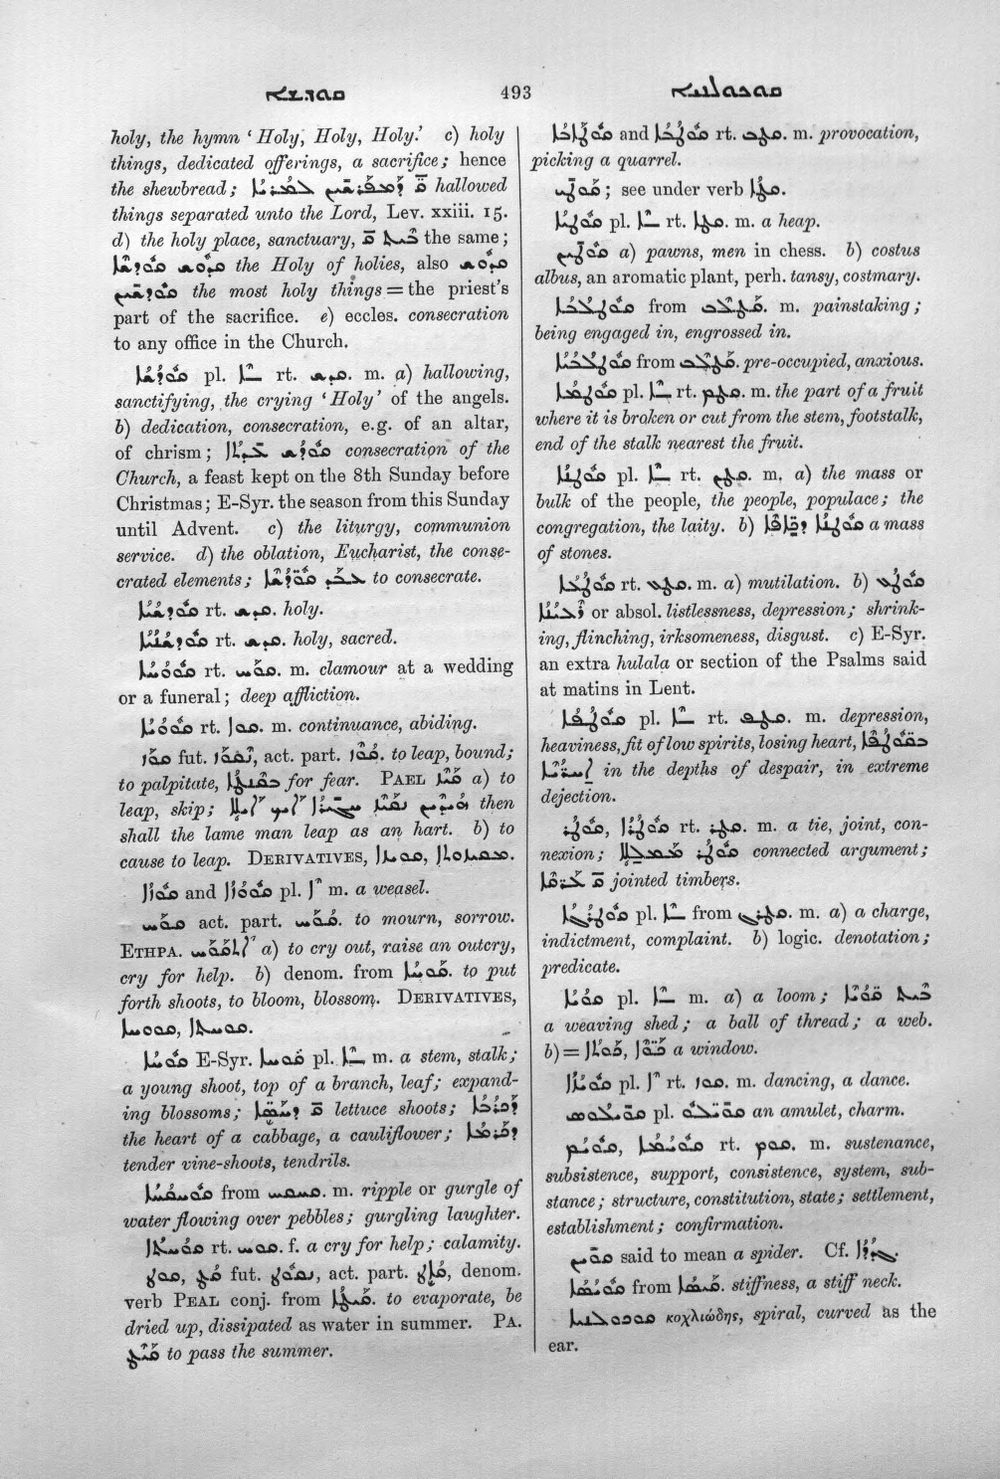 ܩܘܕܫܐ 493
holy, the hymn ‘Holy, Holy, Holy.’ c) holy
things, dedicated offerings, a sacrifice; hence
the shewbread; ܩ̈ ܕܡܦܪܫܝܢ ܠܡܪܝܐ hallowed
things separated unto the Lord, Lev. xxiii. 15.
d) the holy place, sanctuary, ܒܝܬ ܩ the same;
ܩܕܘܫ ܩܘܕܫܐ the Holy of holies, also ܩܕܘܫ
ܩܘܕܫܝܢ the most holy things = the priest's
part of the sacrifice. e) eccles. consecration
to any office in the Church.
ܩܘܕܫܐ pl. ܐ rt. ܩܕܫ. m. a) hallowing,
sanctifying, the crying ‘Holy’ of the angels.
b) dedication, consecration, e.g. of an altar,
of chrism; ܩܘܕܫ ܥܕܬܐ consecration of the
Church, a feast kept on the 8th Sunday before
Christmas; E-Syr. the season from this Sunday
until Advent. c) the liturgy, communion
service. d) the oblation, Eucharist, the conse-
crated elements; ܥܒܕ ܩܘܕܫܐ to consecrate.
ܩܘܕܫܝܐ rt. ܩܕܫ. holy.
ܩܘܕܫܢܝܐ rt. ܩܕܫ. holy, sacred.
ܩܘܘܚܐ rt. ܩܘܚ. m. clamour at a wedding
or a funeral; deep affliction.
ܩܘܘܝܐ rt. ܩܘܐ. m. continuance, abiding.
ܩܘܙ fut. ܢܩܘܙ, act. part. ܩܐܙ. to leap, bound;
to palpitate, for fear. PAEL ܩܝܙ a) to
leap, skip; ܗܝܕܝܢ ܢܩܝܙ ܚܓܝܪܐ ܐܝܟ ܐܝܠܐ then
shall the lame man leap as an hart. b) to
cause to leap. DERIVATIVES, ܩܘܙܐ, ܡܩܘܙܢܘܬܐ.
ܩܘܙܐ and ܩܘܙܙܐ pl. ܐ m. a weasel.
ܩܘܚ act. part. ܩܐܚ. to mourn, sorrow.
ETHPA. ܐܬܩܘܚ a) to cry out, raise an outcry,
cry for help. b) denom. from ܩܘܚܐ. to put
forth shoots, to bloom, blossom. DERIVATIVES,
ܩܘܘܚܐ, ܩܘܚܬܐ.
ܩܘܚܐ E-Syr. ܩܘܚܐ pl. ܐ m. a stem, stalk;
a young shoot, top of a branch, leaf; expand-
ing blossoms; ܩ ܕܚܣܐ lettuce shoots; ܕܟܪܒܐ
the heart of a cabbage, a cauliflower; ܕܟܪܡܐ
tender vine-shoots, tendrils.
ܩܘܚܩܚܐ from ܩܚܩܚ. m. ripple or gurgle of
water flowing over pebbles; gurgling laughter.
ܩܘܚܬܐ rt. ܩܘܚ. f. a cry for help; calamity.
ܩܘܛ, ܩܛ fut. ܢܩܘܛ, act. part. ܩܐܛ, denom.
verb PEAL conj. from ܩܝܛܐ. to evaporate, be
dried up, dissipated as water in summer. PA.
ܩܝܛ to pass the summer.
ܩܘܛܒܐ and ܩܘܛܒܐ rt. ܩܛܒ. m. provocation,
picking a quarrel.
ܩܘܛܝ; see under verb ܩܛܐ.
ܩܘܛܝܐ pl. ܐ rt. ܩܛܐ. m. a heap.
ܩܘܛܝܢ a) pawns, men in chess. b) costus
albus, an aromatic plant, perh. tansy, costmary.
ܩܘܛܠܒܐ from ܩܛܠܒ. m. painstaking;
being engaged in, engrossed in.
ܩܘܛܠܒܝܐ from ܩܛܠܒ. pre-occupied, anxious.
ܩܘܛܡܐ pl. ܐ rt. ܩܛܡ. m. the part of a fruit
where it is broken or cut from the stem, footstalk,
end of the stalk nearest the fruit.
ܩܘܛܢܐ pl. ܐ rt. ܩܛܢ. m. a) the mass or
bulk of the people, the people, populace; the
congregation, the laity. b) ܩܘܛܢܐ ܕܟܐܦܐ a mass
of stones.
ܩܘܛܥܐ rt. ܩܛܥ. m. a) mutilation. b) ܩܘܛܥ
ܪܥܝܢܐ or absol. listlessness, depression; shrink-
ing, flinching, irksomeness, disgust. c) E-Syr.
an extra hulala or section of the Psalms said
at matins in Lent.
ܩܘܛܦܐ pl. ܐ rt. ܩܛܦ. m. depression,
heaviness, fit of low spirits, losing heart, ܒܩܘܛܦܐ
ܐܚܪܝܐ in the depths of despair, in extreme
dejection.
ܩܘܛܪ, ܩܘܛܪܐ rt. ܩܛܪ. m. a tie, joint, con-
nexion; ܩܘܛܪ ܡܡܠܠܐ connected argument;
ܩ ܥܪܩܐ jointed timbers.
ܩܘܛܪܓܐ pl. ܐ from ܩܛܪܓ. m. a) a charge,
indictment, complaint. b) logic. denotation;
predicate.
ܩܘܝܐ pl. ܐ m. a) a loom; ܒܝܬ ܩܘܝܐ
a weaving shed; a ball of thread; a web.
b) = ܟܘܬܐ, ܟܘܐ a window.
ܩܘܝܙܐ pl. ܐ rt. ܩܘܙ. m. dancing, a dance.
ܩܘܝܠܘܣ pl. ܩܘܝܠܐ an amulet, charm.
ܩܘܝܡ, ܩܘܝܡܐ rt. ܩܘܡ. m. sustenance,
subsistence, support, consistence, system, sub-
stance; structure, constitution, state; settlement,
establishment; confirmation.
ܩܘܝܢ said to mean a spider. Cf.
ܩܘܝܣܐ from ܩܝܣܐ. stiffness, a stiff neck.
κοχλιώδης, spiral, curved as the
ear.